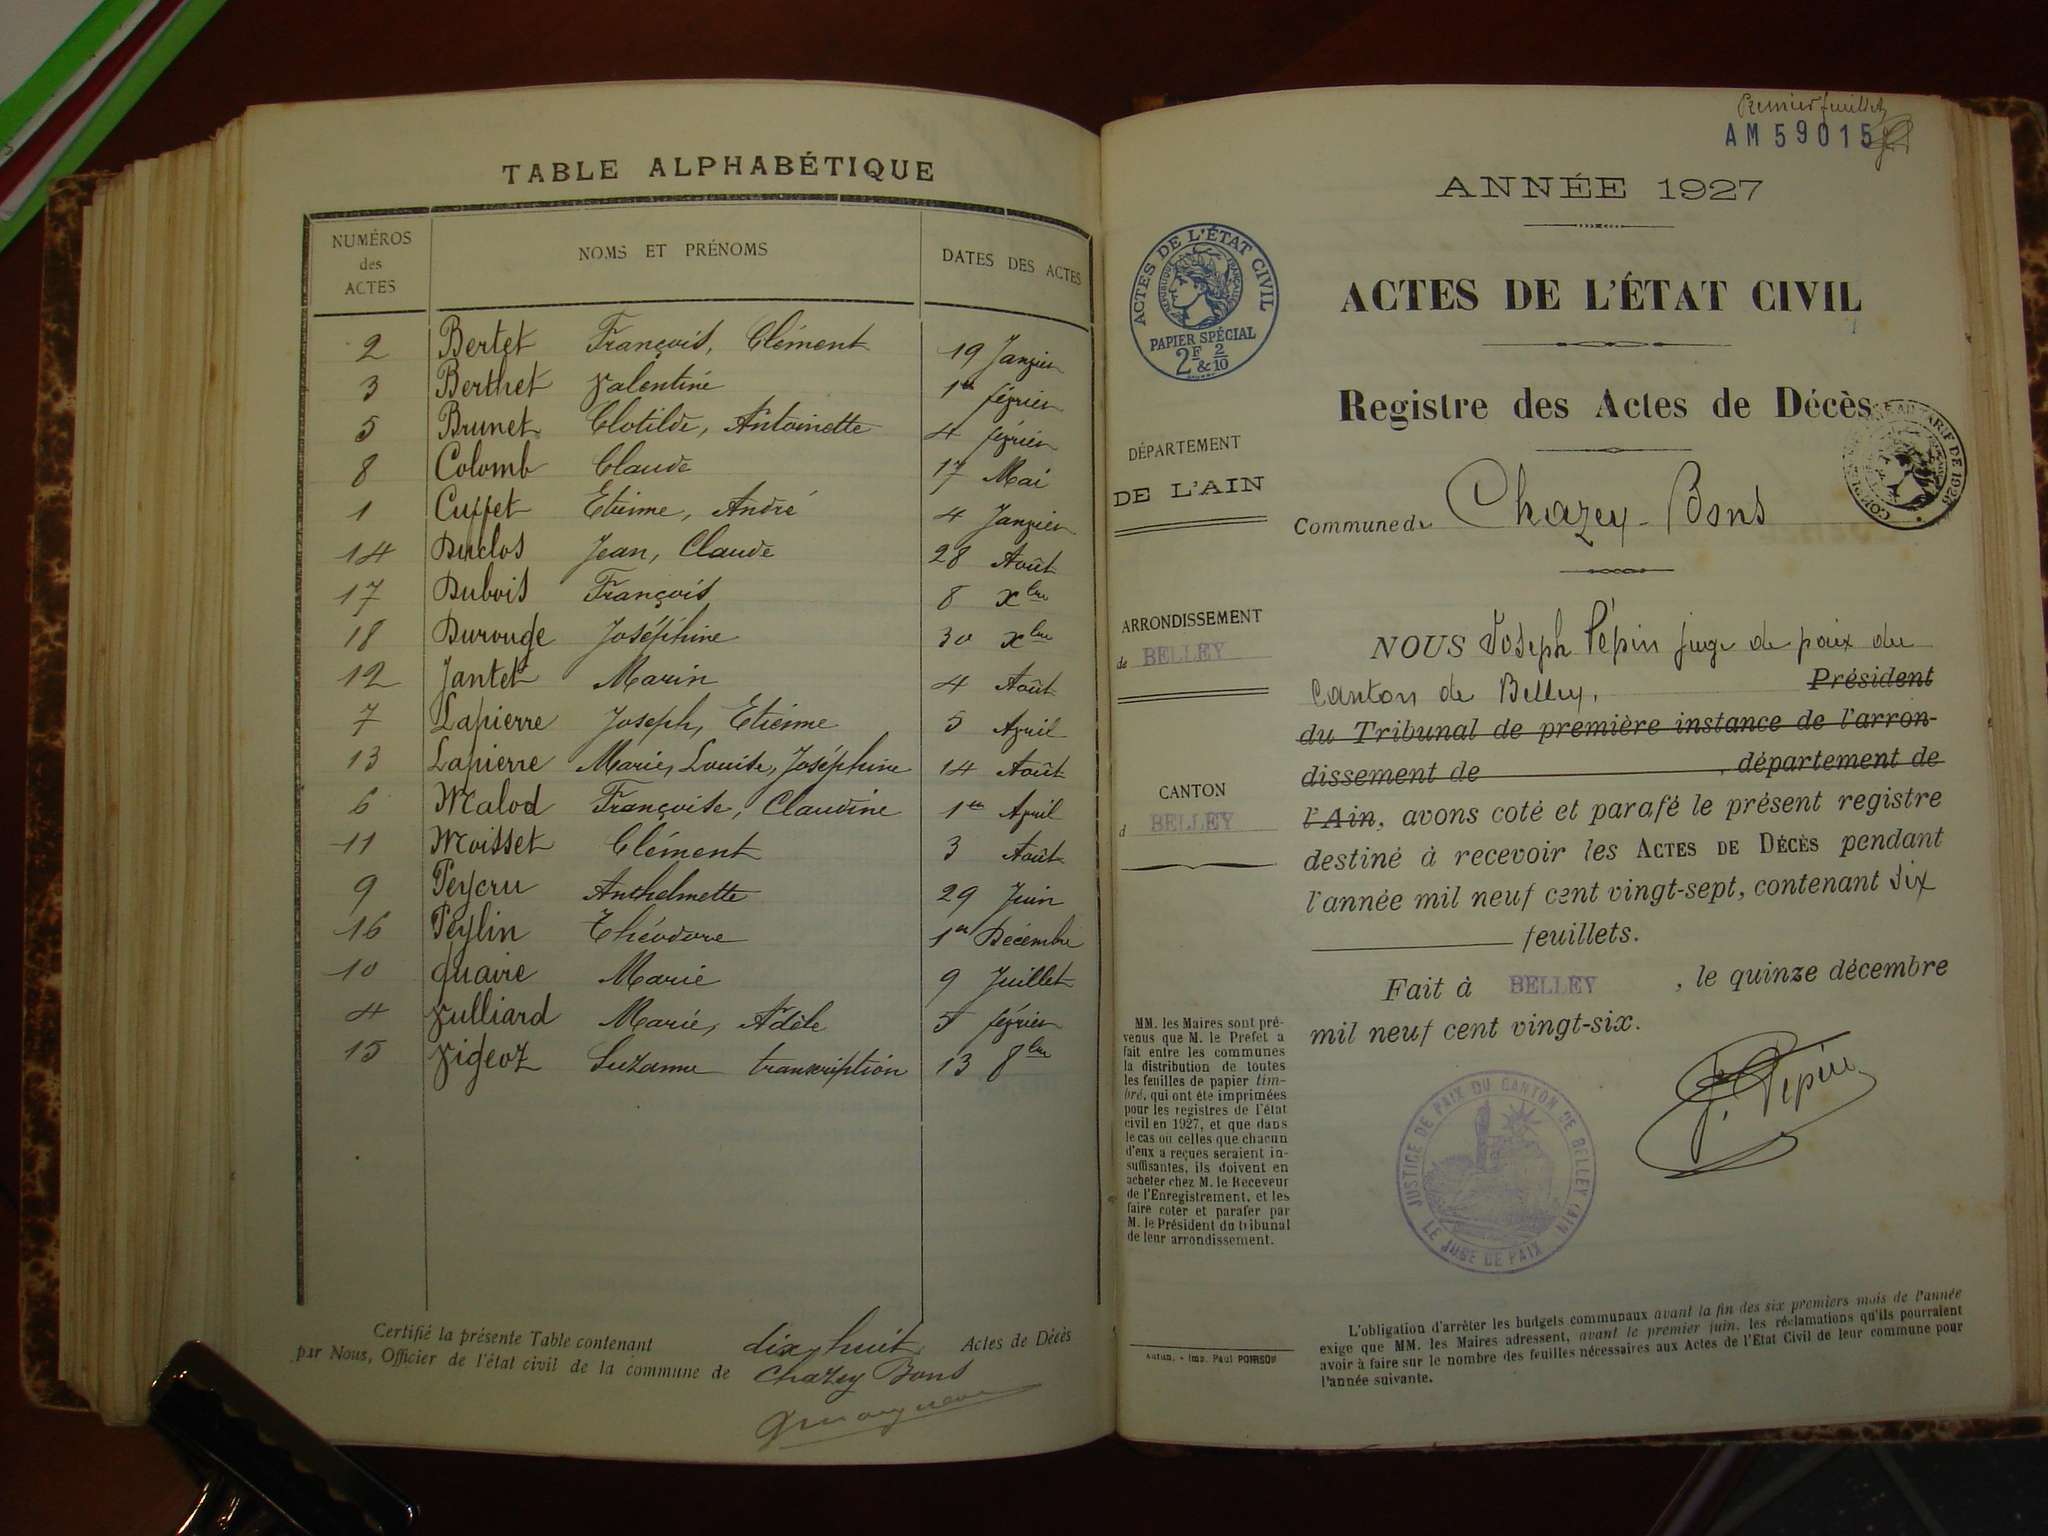 TABLE ALPHABÉTIQUE
NUMÉROS des ACTES NOMS ET PRÉNOMS DATES DES ACTES
2 Bertet François, Clément 19 Janvier
3 Berthet Valentine 1er février
5 Brunet Clotilde, Antoinette 4 février
8 Colomb Claude 17 Mai
1 Cuffet Etienne, André 4 Janvier
14 Duclos Jean, Claude 28 Août
17 Dubois François 8 Xbre
18 Durouge Joséphine 30 Xbre
12 Jantet Marin 4 Août
7 Lapierre Joseph, Etienne 5 Avril
13 Lapierre Marie, Louise, Joséphine 14 Août
6 Malod Françoise, Claudine 1er Avril
11 Moisset Clément 3 Août
9 Peycru Anthelmette 29 Juin
16 Peylin Théodore 1er Décembre
10 Quaire Marie 9 Juillet
4 Vulliard Marie, Adèle 5 février
15 Vigeoz Suzanne transcription 13 8bre
Certifié la présente Table contenant dix huit Actes de Décès
par Nous, Officier de l'état civil de la commune de Chazey Bons
Premier feuillet
AM 59015
ANNÉE 1927
ACTES DE L'ÉTAT CIVIL
RÉPUBLIQUE FRANÇAISE
PAPIER SPÉCIAL
2F & 2/10
ACTES DE L'ÉTAT CIVIL
Registre des Actes de Décès
AU TARIF DE 1926
DÉPARTEMENT
DE L'AIN
Commune de Chazey-Bons
ARRONDISSEMENT
de BELLEY
CANTON
d BELLEY
NOUS Joseph Pépin juge de paix du
Canton de Belley, Président
du Tribunal de première instance de l'arron-
dissement de , département de
l'Ain, avons coté et parafé le présent registre
destiné à recevoir les ACTES DE DÉCÈS pendant
l'année mil neuf cent vingt-sept, contenant six
feuillets.
Fait à BELLEY, le quinze décembre
mil neuf cent vingt-six.
J. Pépin
JUSTICE DE PAIX DU CANTON DE BELLEY (AIN)
LE JUGE DE PAIX
MM. les Maires sont pré-
venus que M. le Préfet a
fait entre les communes
la distribution de toutes
les feuilles de papier tim-
bré, qui ont été imprimées
pour les registres de l'état
civil en 1927, et que dans
le cas où celles que chacun
d'eux a reçues seraient in-
suffisantes, ils doivent en
acheter chez M. le Receveur
de l'Enregistrement, et les
faire coter et parafer par
M. le Président du tribunal
de leur arrondissement.
Autun. - Imp. Paul POIRSON
L'obligation d'arrêter les budgets communaux avant la fin des six premiers mois de l'année
exige que MM. les Maires adressent, avant le premier juin, les réclamations qu'ils pourraient
avoir à faire sur le nombre des feuilles nécessaires aux Actes de l'Etat Civil de leur commune pour
l'année suivante.